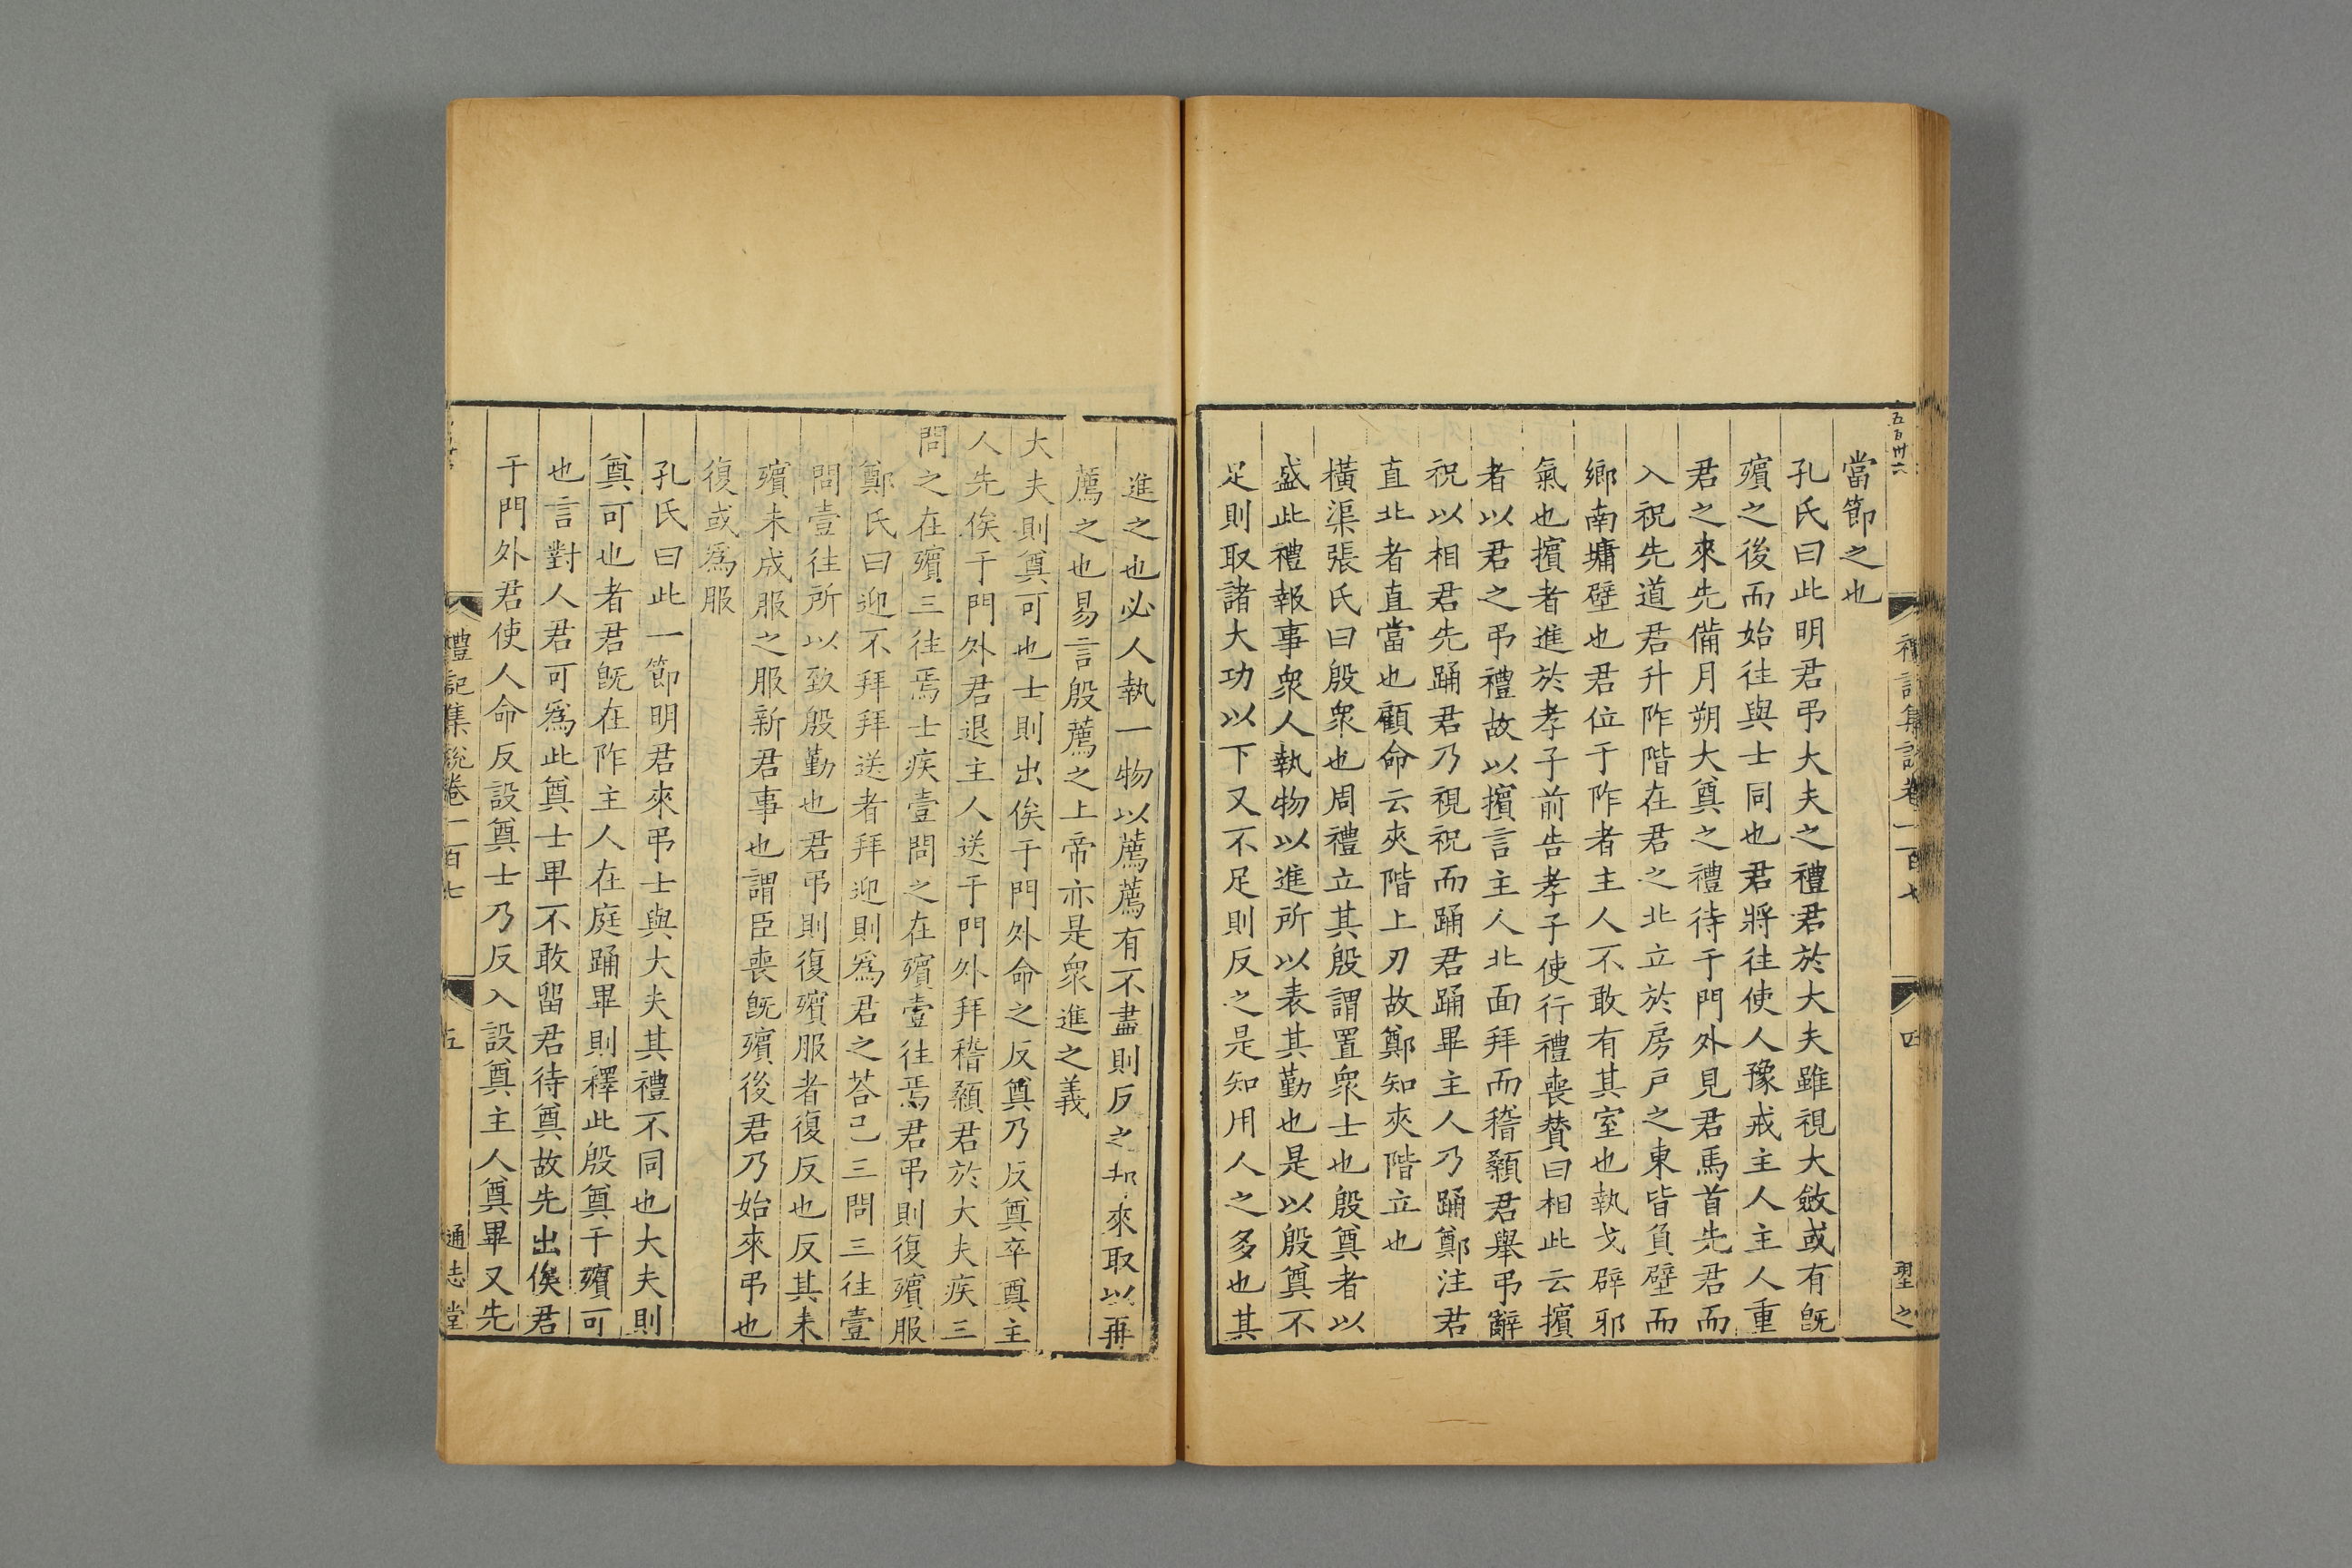 五百卅六
當節之也
孔氏曰此明君弔大夫之禮君於大夫雖視大斂或有旣
殯之後而始往與士同也君將往使人豫戒主人主人重
君之來先備月朔大奠之禮待于門外見君馬首先君而
入祝先道君升阼階在君之北立於房戶之東皆負壁而
鄉南墉壁也君位于阼者主人不敢有其室也執戈辟邪
氣也擯者進於孝子前告孝子使行禮喪贊曰相此云擯
者以君之弔禮故以擯言主人北面拜而稽顙君舉弔辭
祝以相君先踊君乃視祝而踊君踊畢主人乃踊鄭注君
直北者直當也顧命云夾階上刃故鄭知夾階立也
橫渠張氏曰殷衆也周禮立其殷謂置衆士也殷奠者以
盛此禮報事衆人執物以進所以表其勤也是以殷奠不
足則取諸大功以下又不足則反之是知用人之多也其
禮記集說卷一百七
四
聖之
進之也必人執一物以薦薦有不盡則反之却來取以再
薦之也易言殷薦之上帝亦是衆進之義
大夫則奠可也士則出俟于門外命之反奠乃反奠卒奠主
人先俟于門外君退主人送于門外拜稽顙君於大夫疾三
問之在殯三往焉士疾壹問之在殯壹往焉君弔則復殯服
鄭氏曰迎不拜拜送者拜迎則爲君之荅己三問三往壹
問壹往所以致殷勤也君弔則復殯服者復反也反其未
殯未成服之服新君事也謂臣喪旣殯後君乃始來弔也
復或爲服
孔氏曰此一節明君來弔士與大夫其禮不同也大夫則
奠可也者君旣在阼主人在庭踊畢則釋此殷奠于殯可
也言對人君可爲此奠士卑不敢留君待奠故先出俟君
于門外君使人命反設奠士乃反入設奠主人奠畢又先
禮記集說卷一百七
五
通志堂